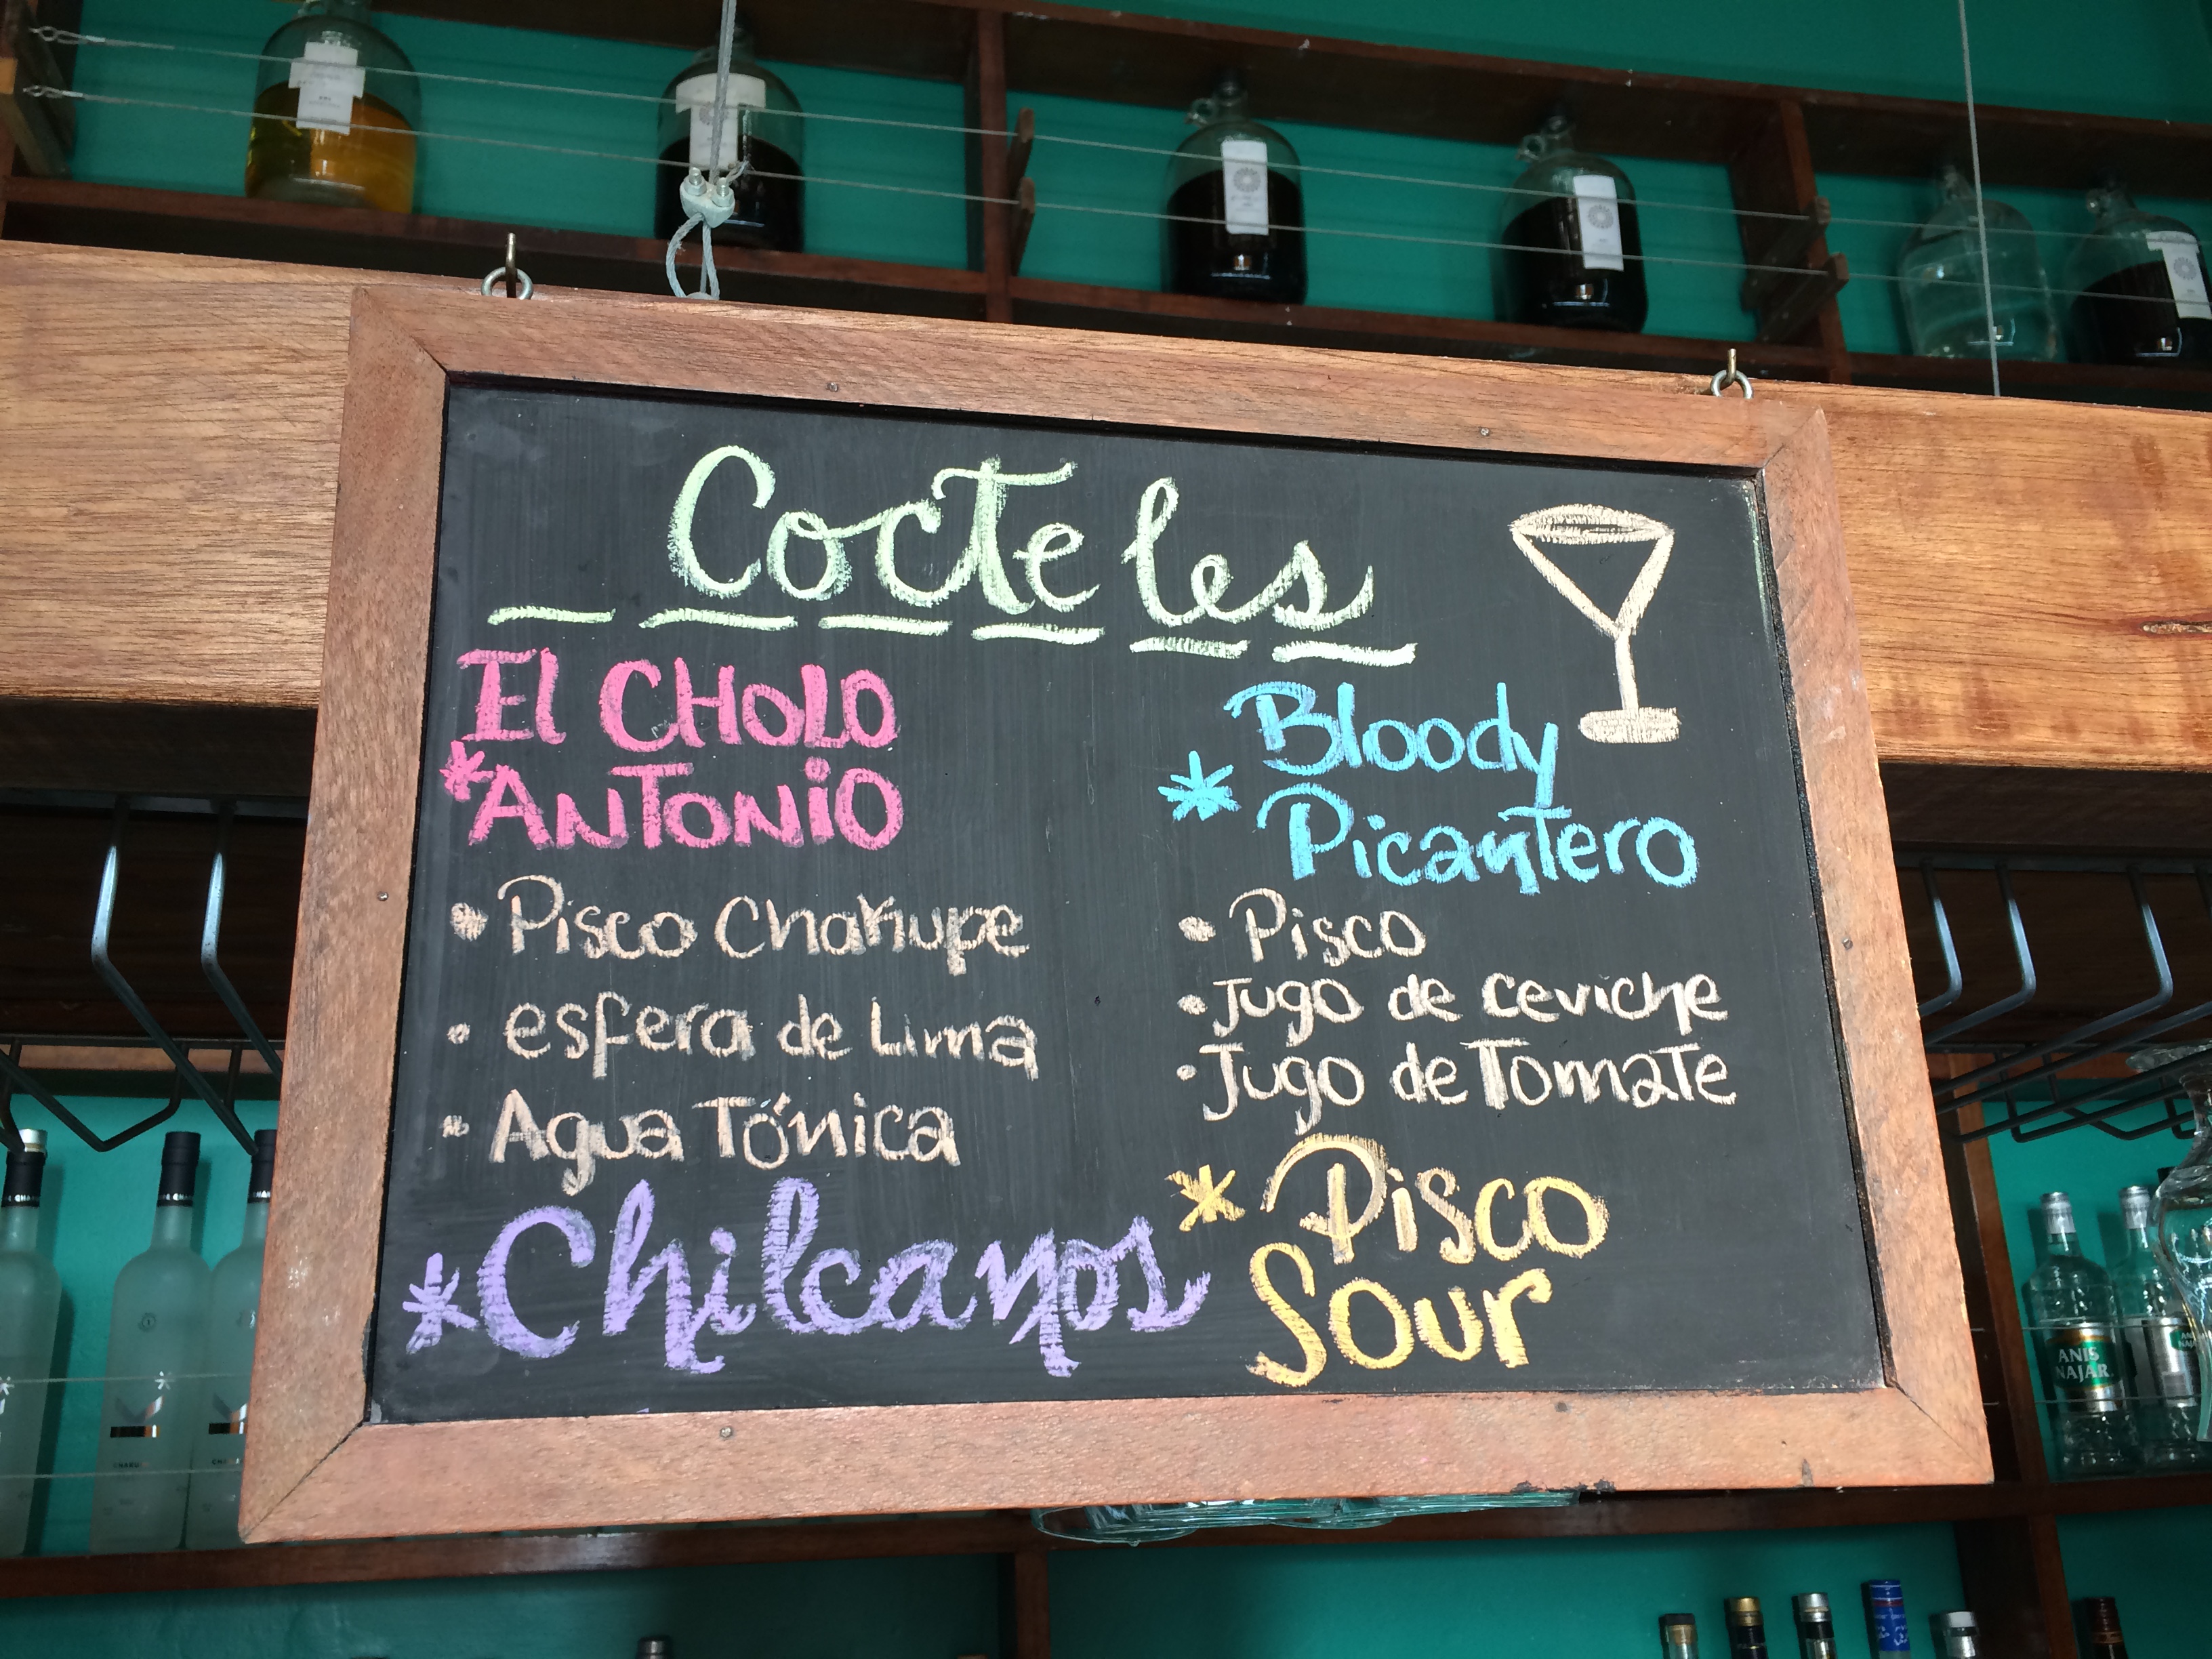 Cocteles
El CHOLO
*ANTONIO
• Pisco Chakupe
• esfera de Lima
• Agua Tónica
*Chilcanos
Bloody
* Picantero
• Pisco
• Jugo de ceviche
• Jugo de Tomate
* Pisco
Sour
ANIS
NAJAR